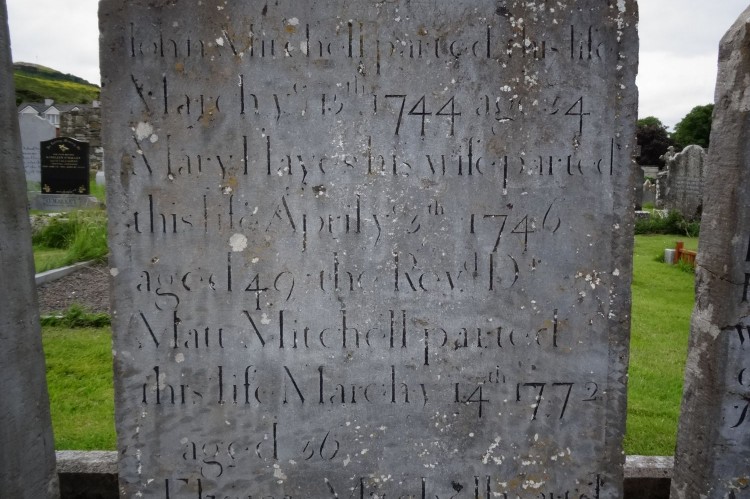 John Mitchell parted this life
March yᵉ 15th 1744 aged 54
Mary Hayes his wife parted
this life April yᵉ 5th 1746
aged 49 the Revᵈ Dʳ
Matt Mitchell parted
this life March y 14th 1772
aged 56
Mitchell